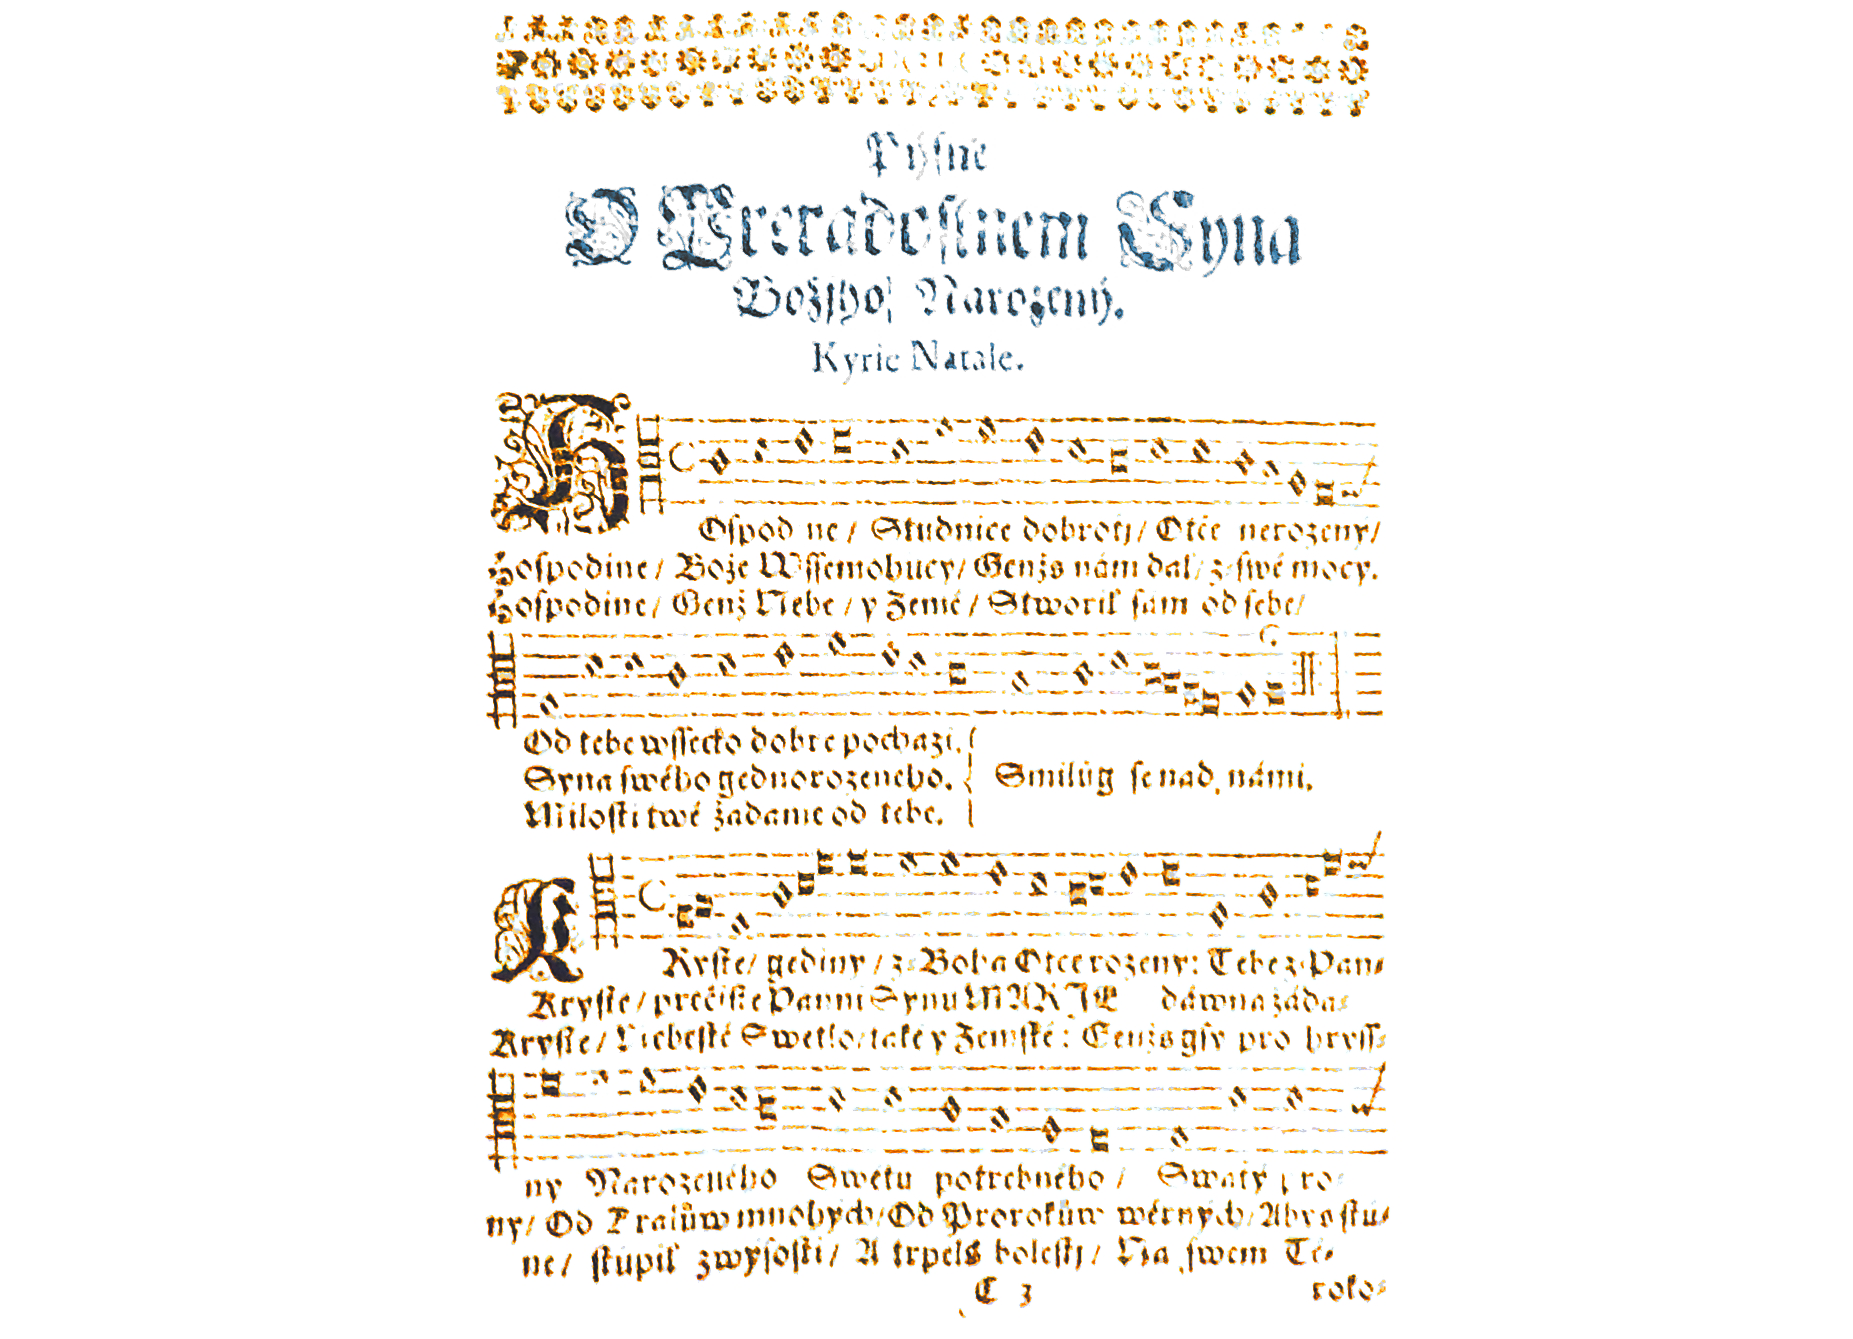 Pýsně
O Přeradostnem Syna
Božjho Narozený.
Kyrie Natale.
HOspodine / Studnice dobrotj / Otče nerozený /
Hospodine / Bože Wssemohucy / Genžs nám dal / z swé mocy.
Hospodine / Genž Nebe / y Zemĕ / Stwořil sám od sebe /
Od tebe wssecko dobre pochazí.
Syna swého gednorozeneho.
Milosti twé žadame od tebe.
Smilůg se nad námi.
KRyste / gediny / z Boha Otce rozeny: Tebe z Pan⸗
Kryste / prečisté Panni Synu MARJE dáwna žáda⸗
Kryste / Nebeské Swetlo / také y Zemské: Genžs gsy pro hryss⸗
ny Narozeného Swětu potrebného / Swatý pro⸗
ny / Od Kralůw mnohých / Od Prorokůw wěrných / Abys stu⸗
ne / stúpil z wysosti / A trpěls bolestj / Na swem Tě⸗
C 3 roko⸗